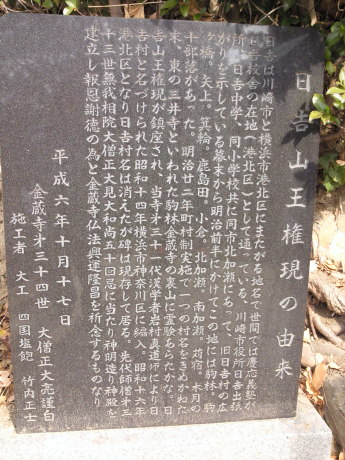 日吉山王権現の由来
日吉は川崎市と横浜市港北区にまたがる地名で世間では慶応義塾が
日吉校舎の在地（港北区）として通っている。川崎市役所日吉出張
所、日吉中学、同小学校共に同市北加瀬にあって、旧日吉村の広
がりを示している幕末から明治前半にかけてこの地には駒林、駒
ヶ橋。矢上。箕輪。鹿島田。小倉。北加瀬。南加瀬。苅宿。木月の
十部落があった。明治廿二年町村制実施で一つの村名をきめかねた
末、東の三井寺といわれた駒林金蔵寺の裏山に霊験あらたかな。日
吉山王権現が鎮座され、当寺才三十一代漢学者岩村真道師により日
吉村と名づけられた昭和十四年横浜市神奈川区に編入。昭和十六年
港北区となり日吉村名は消えたが碑は現存して居る。先代師僧才三
十三世無我相院大僧正文晃大和尚五十回忌に当たり神明造り神殿を
建立し報恩謝徳の為と金蔵寺仏法興運隆昌を祈念するものなり
平成六年十月十七日
金蔵寺才三十四世 大僧正文亮謹白
施工者 大工 四国塩飽 竹内正士